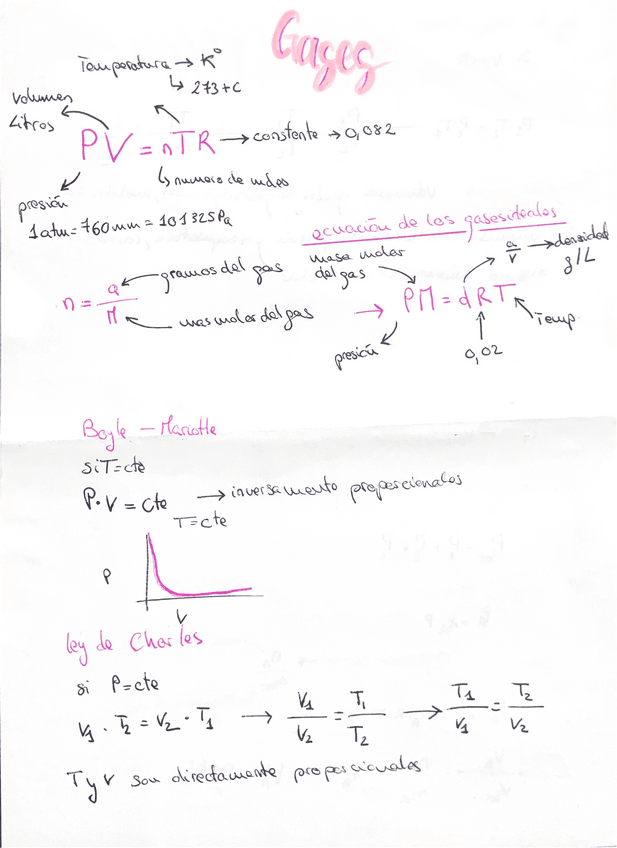 Gases
Temperatura → K°
↳ 273+C
volumen
Litros
PV = nTR → constente → 0,082
↳ numero de moles
presión
1 atm = 760 mm = 101325 Pa
ecuación de los gases ideales
masa molar
del gas
a/v → densidad
g/L
n = a/M
gramos del gas
mas molar del gas
→ PM = dRT
presión
0,02
Temp.
Boyle - Mariotte
si T=cte
P.V = cte → inversamento proporcionales
T=cte
P
V
ley de Charles
si P=cte
V1 . T2 = V2 . T1 → V1/V2 = T1/T2 → T1/V1 = T2/V2
T y V son directamente proporcionales